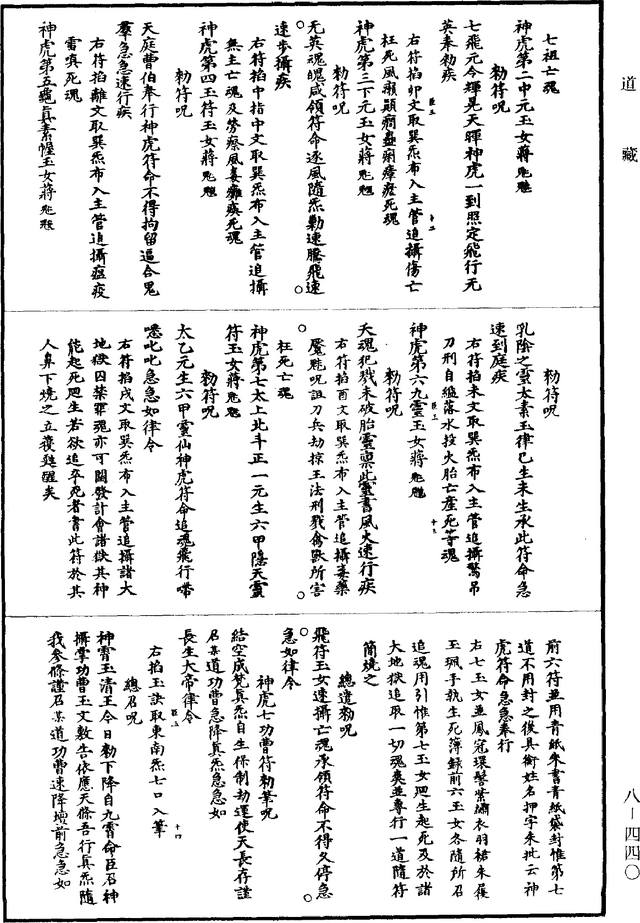 道藏
七祖亡魂
神虎第二中元玉女蔣
勑符呪
七飛元令輝晃天暉神虎一到照定飛行无
英奉勑疾
右符掐卯文取巽炁布入主管追攝傷亡
枉死風癲顛癇蠱痢瘴瘧死魂
神虎第三下元玉女蔣
勑符呪
无英魂魄咸領符命逐風隨炁勤速騰飛速
速步攝疾
右符掐中指中文取巽炁布入主管追攝
無主亡魂及勞瘵風毒癱瘓死魂
神虎第四玉符玉女蔣
勑符呪
天庭曹伯奉行神虎符命不得拘留逼合鬼
羣急急速行疾
右符掐離文取巽炁布入主管追攝瘟疫
雷嗔死魂
神虎第五 真素幄玉女蔣
勑符呪
乳陰之靈太素玉律已生未生承此符命急
速到庭疾
右符掐未文取巽炁布入主管追攝驚吊
刀刑自縊落水投火胎亡產死等魂
神虎第六九靈玉女蔣
勑符呪
天魂犯戮未破胎靈稟此靈書風火速行疾
右符掐酉文取巽炁布入主管追攝毒藥
魘魅呪詛刀兵劫掠王法刑戮禽獸所害
枉死亡魂
神虎第七太上北斗正一元生六甲隱天靈
符玉女蔣
勑符呪
太乙元生六甲靈仙神虎符命追魂飛行啼
噁叱叱急急如律令
右符掐戌文取巽炁布入主管追攝諸大
地獄囚禁罪魂亦可關發計會諸獄其神
能起死廻生若欲追卒死者書此符於其
人鼻下燒之立復甦醒矣
前六符並用青紙朱書青紙袋封惟第七
道不用封之後具銜姓名押字朱批云神
虎符命急急奉行
右七玉女並鳳冠環髻紫繡衣羽裙朱履
玉珮手執生死簿錄前六玉女各隨所召
追魂用引惟第七玉女廻生起死及於諸
大地獄追取一切魂奭並專行一道隨符
簡燒之
總遣勑呪
飛符玉女速攝亡魂承領符命不得久停急
急如律令
神虎七功曹符勑筆呪
結空成梵真炁自生保制劫運使天長存謹
召某道功曹急降真炁急急如
長生大帝律令
右掐玉訣取東南炁七口入筆
總召呪
神霄玉清王今日勑下降自九霄命臣召神
攝掌功曹玉文敷告依應天條吾行真炁隨
我參條謹召某道功曹速降壇前急急如
八—四四〇